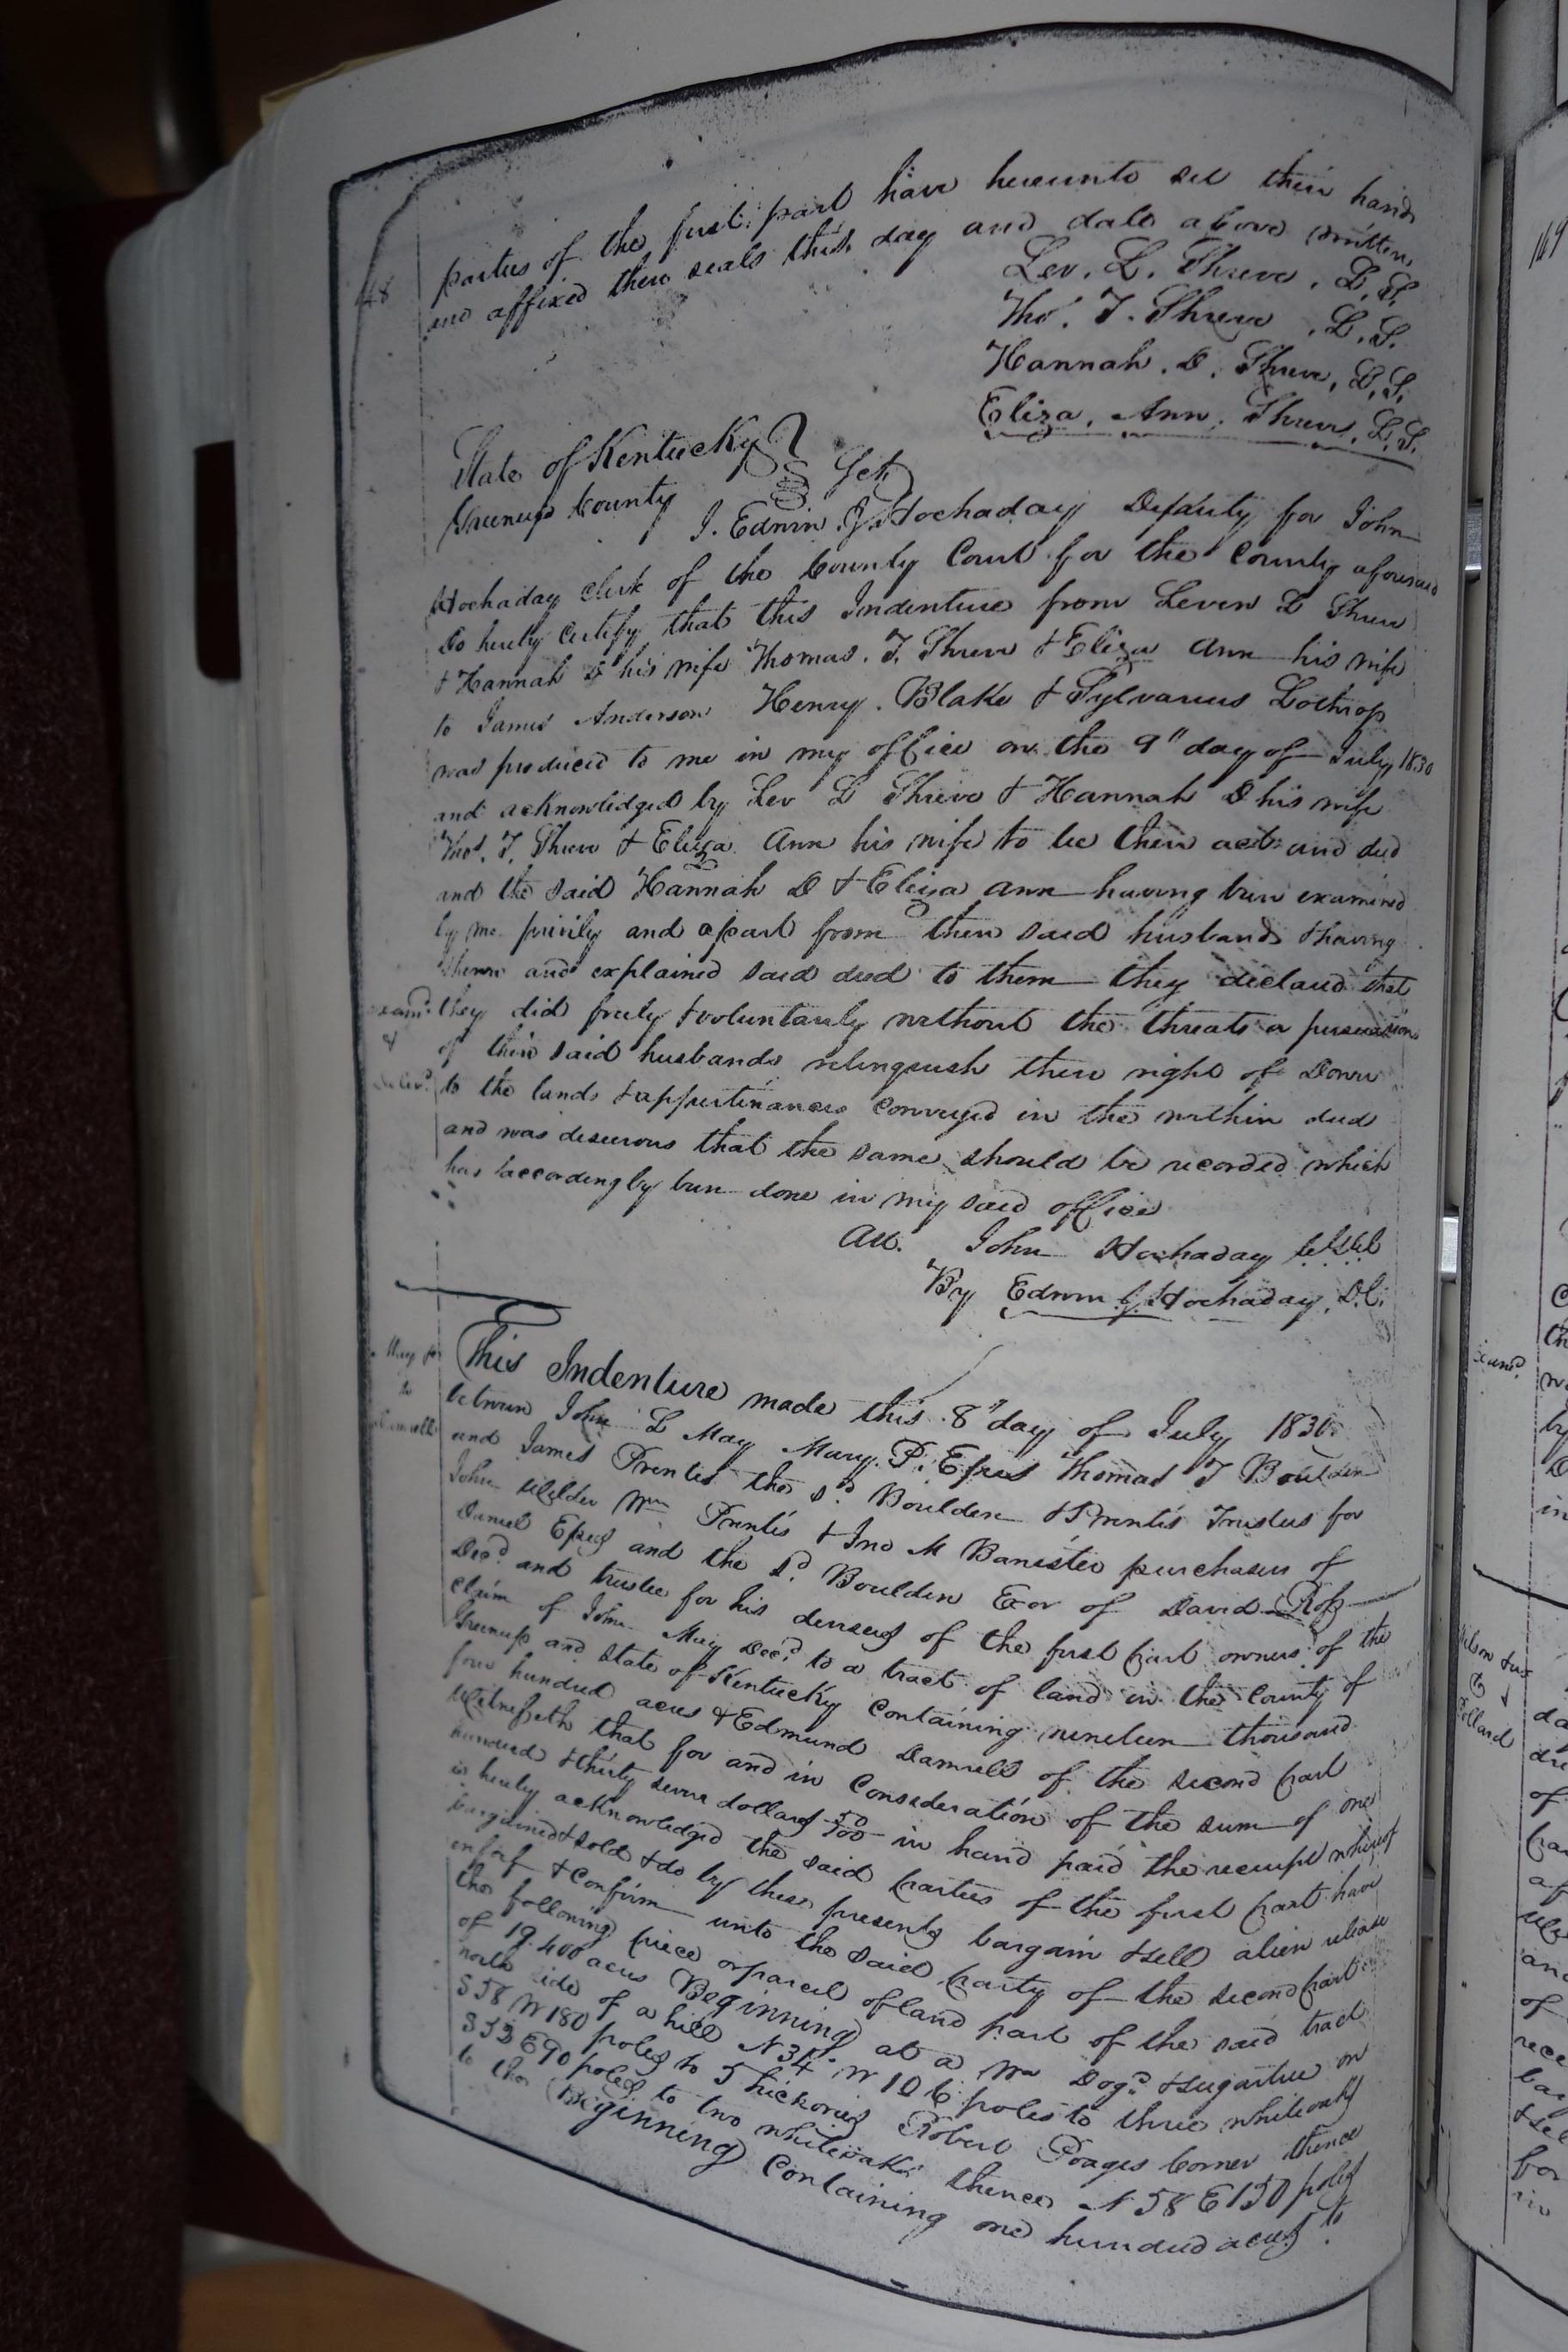 48
parties of the first part have hereunto set their hands
and affixed their seals this day and date above written
Lev. L. Shreve, L.S.
Tho. T. Shreve, L.S.
Hannah. D. Shreve, L.S.
Eliza. Ann. Shreve. L.S.
State of Kentucky
Greenup County Sct
I. Edwin J. Hockaday Deputy for John
Hockaday clerk of the County Court for the County aforesaid
do hereby certify that this Indenture from Leven L Shreve
& Hannah D his wife Thomas. T. Shreve & Eliza Ann his wife
to James Anderson Henry. Blake & Sylvanus Lothrop
was produced to me in my office on the 9" day of July 1830
and acknowledged by Lev L Shreve & Hannah D his wife
Thos. T. Shreve & Eliza Ann his wife to be their act and deed
and the said Hannah D & Eliza Ann having been examined
by me privily and apart from their said husbands & having
shewn and explained said deed to them they declared that
they did freely & voluntarily without the threats or persuasion
of their said husbands relinquish their right of Dower
to the lands & appurtinances conveyed in the within deed
and was desierous that the same should be recorded which
has accordingly been done in my said office
Att. John Hockaday
By Edwin J. Hockaday, D.C.
exam.d
&
Deliv.d
May
to
Damrell
This Indenture made this 8" day of July 1830
between John L May Mary. P. Epes Thomas T Bouldin
and James Prentis the sd. Bouldin & Prentis Trustees for
John Wilder Wm Prentis & Jno M Banister purchasers of
Daniel Epes and the sd. Bouldin Exor of David Ross
Decd. and trustee for his devisees of the first part owners of the
claim of John May Decd. to a tract of land in the County of
Greenup and State of Kentucky containing nineteen thousand
four hundred acres & Edmund Damrell of the second part
Witnesseth that for and in Consideration of the sum of one
hundred & thirty seven dollars 50/100 in hand paid the receipt whereof
is hereby acknowledged the said parties of the first part have
bargained & sold & do by these presents bargain & sell alien release
enfeof & confirm unto the said party of the second part
the following piece or parcel of land part of the said tract
of 19.400 acres Beginning at a Dogd. & sugartree on
north side of a hill N 34° W 106 poles to three whiteoaks
S 58 W 180 poles to 5 hickories Robert Poages corner thence
S 53 E 90 poles to two whiteoaks thence N 58 E 150 poles
to the Beginning containing one hundred acres to
examd.
&